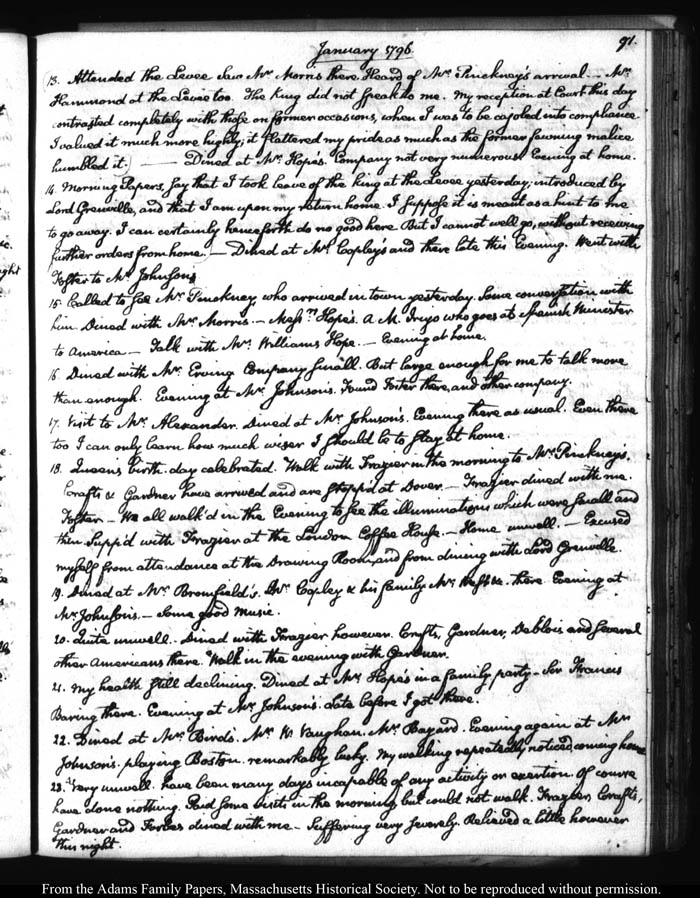 January 1796.
91.
13. Attended the Levee Saw Mr. Morris there. Heard of Mr. Pinckney's arrival. — Mr.
Hammond at the Levee too. The King did not speak to me. My reception at Court this day
contrasted completely with those on former occasions, when I was to be cajoled into compliance
I valued it much more highly; it flattered my pride as much as the former fawning malice
humbled it. — Dined at Mr. Hope's. Company not very numerous. Evening at home.
14. Morning Papers, say that I took leave of the king at the Levee yesterday; introduced by
Lord Grenville, and that I am upon my return home. I suppose it is meant as a hint to me
to go away. I can certainly henceforth do no good here. But I cannot well go, without receiving
further orders from home. — Dined at Mr. Copley's and there late this Evening. Went with
Foster to Mr. Johnson's
15. Called to see Mr. Pinckney, who arrived in town yesterday. Some conversation with
him. Dined with Mr. Morris. — Messrs. Hope's. A M. Irujo who goes as Spanish Minister
to America — Talk with Mr. Williams Hope. — Evening at home.
16. Dined with Mr. Erving Company small. But large enough for me to talk more
than enough. Evening at Mr. Johnson's. Found Foster there, and other company.
17. Visit to Mr. Alexander. Dined at Mr. Johnson's. Evening there as usual. Even there
too I can only learn how much wiser I should be to stay at home.
18. Queens birth-day celebrated. Walk with Frazier in the morning to Mr. Pinckney's.
Crafts & Gardner have arrived and are stopp'd at Dover. — Frazier dined with me.
Foster — We all walk'd in the Evening to see the illuminations which were small and
then Supp'd with Frazier at the London Coffee House. — Home unwell. — Excused
myself from attendance at the Drawing Room, and from dining with Lord Grenville.
19. Dined at Mr. Bromfield's. Mr. Copley & his family Mr. &c. there. Evening at
Mr. Johnson's. — Some good Music.
20. Quite unwell. Dined with Frazier however. Crafts, Gardner, Deblois and several
other Americans there. Walk in the evening with Gardner.
21. My health still declining. Dined at Mr. Hope's in a family party — Sir Francis
Baring there. Evening at Mr. Johnson's. Late before I got there.
22. Dined at Mr. Bird's. Mr. W. Vaughan. Mr. Bayard. Evening again at Mr.
Johnson's. playing Boston. remarkably lucky. My walking repeatedly noticed, coming home
23. Very unwell. have been many days incapable of any activity or exertion. Of course
have done nothing. Paid some visits in the morning but could not walk. Frazier, Crafts,
Gardner and Forbes dined with me — Suffering very severely. Relieved a little however
this night.
From the Adams Family Papers, Massachusetts Historical Society. Not to be reproduced without permission.